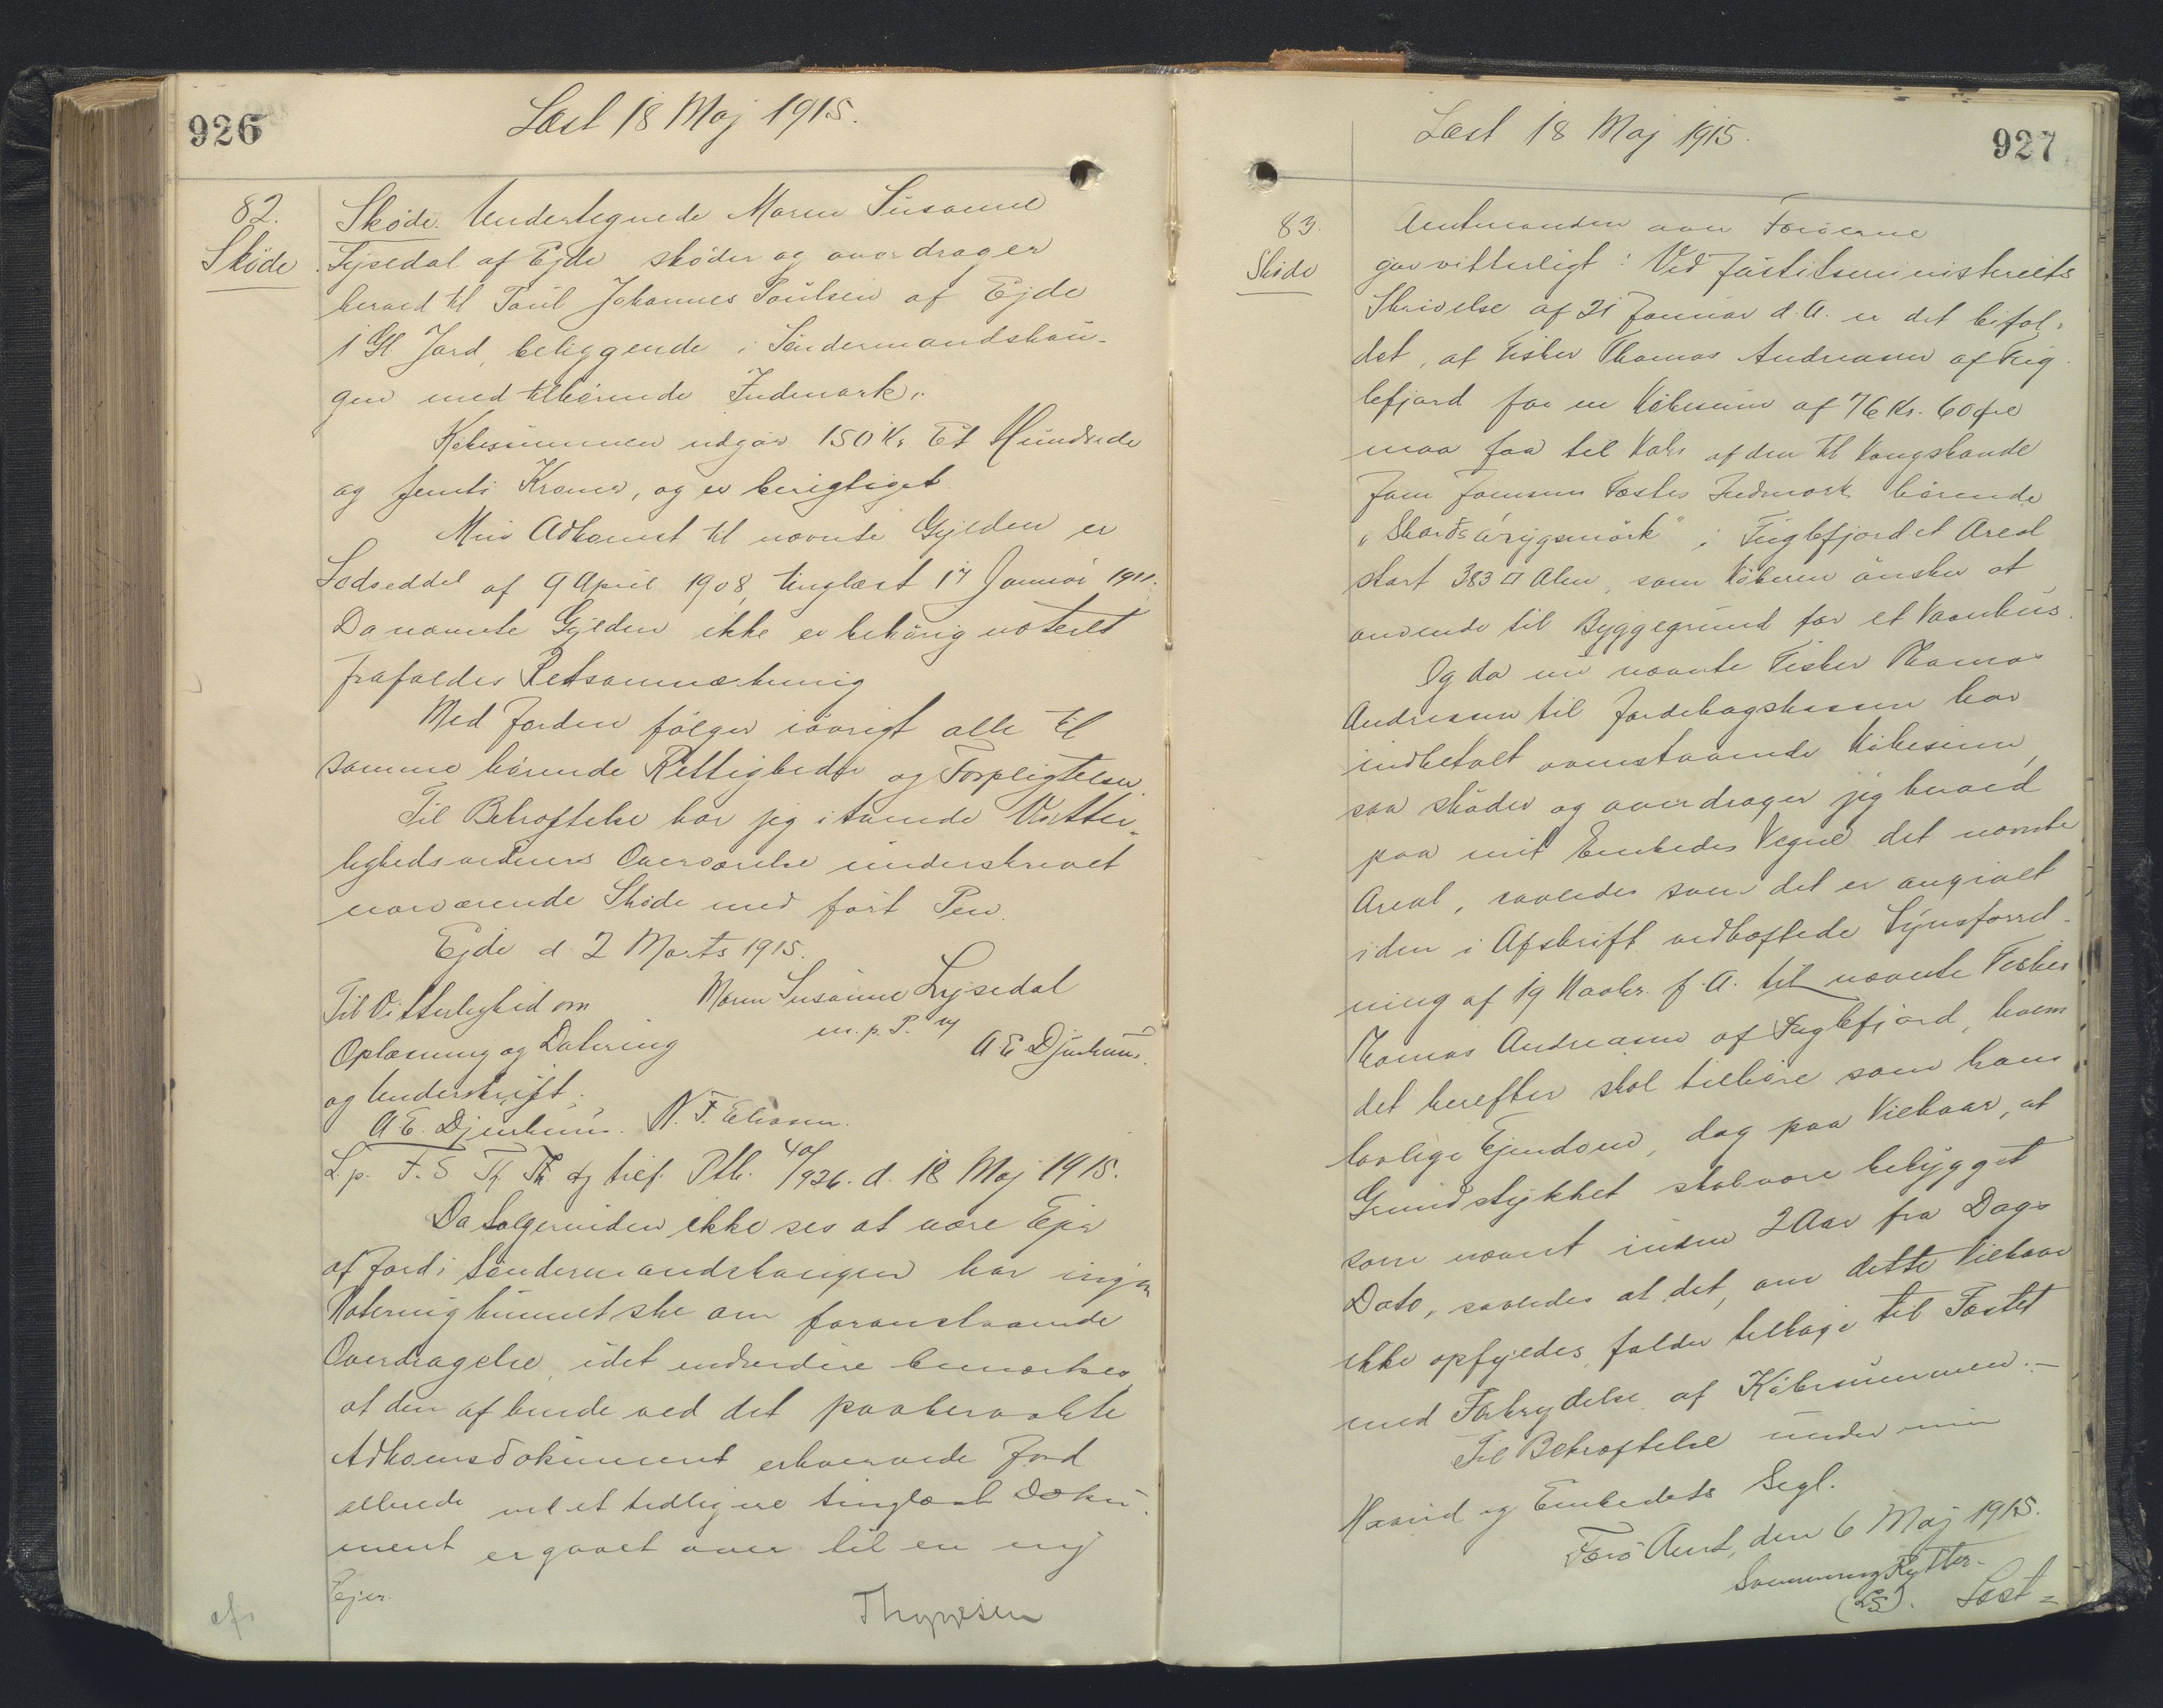 926
Læst 18 Maj 1915.
82.
Skøde
Skøde. Undertegnede Maren Susanne
Lysedal af Ejde skøder og overdrager
herved til Poul Johannes Poulsen af Ejde
1 Gl. Jord, beliggende i Søndermandshau-
gen med tilhørende Indmark.
Købesummen udgør 150 Kr. Et Hundrede
og femti Kroner, og er berigtiget.
Min Adkomst til nævnte Gylden er
Lodseddel af 9 April 1908, tinglæst 17 Januar 1911.
Da nævnte Gylden ikke er behørig noteret
frafaldes Retsanmærkning
Med Jorden følger iøvrigt alle til
samme hørende Rettigheder og Forpligtelser.
Til Bekræftelse har jeg i tvende Vitter-
lighedsvidners Overværelse underskrevet
nærværende Skøde med ført Pen.
Ejde d. 2 Marts 1915.
Maren Susanne Lysedal
m. p. P. v/
A. E. Djurhuus.
Til Vitterlighed om
Oplæsning og Datering
og Underskrift:
A. E. Djurhuus. N. F. Eliasen.
L. p. F. S. Th. af tief. Ptk. 40/926. d. 18 Maj 1915.
Da Sælgerinden ikke ses at være Ejer
af Jord i Søndermandshaugen har ingen
Notering kunnet ske om foranstaaende
Overdragelse, idet endvidere bemærkes,
at den af hende ved det paaberaabte
Adkomsdokument erhvervede Jord
allerede ved et tidligere tinglæst Doku-
ment er gaaet over til en ny
Ejer.
Thygesen
927
Læst 18 Maj 1915.
83.
Skøde
Amtmanden over Færøerne
gør vitterligt: Ved Justitsministeriets
Skrivelse af 21 Januar d. A. er det bifal-
det, at Fisker Thomas Andreasen af Fug-
lefjord for en Købesum af 76 Kr. 60 Øre
maa faa til Købs af den til Kongsbonde
Joen Joensens Fæstes Indmark hørende
"Skarðsárygsmørk" i Fuglefjord et Areal
stort 383 □ Alen, som Køberen ønsker at
anvende til Byggegrund for et Vaanhus.
Og da nu nævnte Fisker Thomas
Andreasen til Jordebogskassen har
indbetalt ovenstaaende Købesum,
saa skøder og overdrager jeg herved
paa mit Embedes Vegne det nævnte
Areal, saaledes som det er angivet
i den i Afskrift vedhæftede Synsforret-
ning af 19 Novbr. f. A. til nævnte Fisker
Thomas Andreasen af Fuglefjord, hvem
det herefter skal tilhøre som hans
lovlige Ejendom, dog paa Vilkaar, at
Grundstykket skal være bebygget
som nævnt inden 2 Aar fra Dags
Dato, saaledes at det, om dette Vilkaar
ikke opfyldes, falder tilbage til Fæstet
med Forbrydelse af Købesummen. –
Til Bekræftelse under min
Haand og Embedets Segl.
Færø Amt, den 6 Maj 1915.
Svenning Rytter.
(LS). Læst =